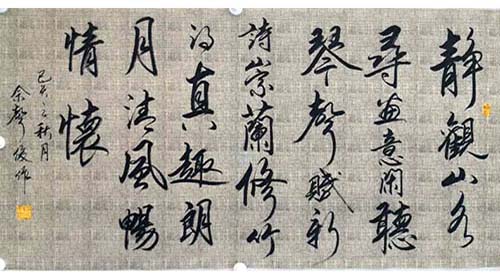 静觀山水
尋畫意閑聽
琴聲賦新
詩崇蘭修竹
得真趣朗
月清風暢
情懷
秋月
余聲俊作